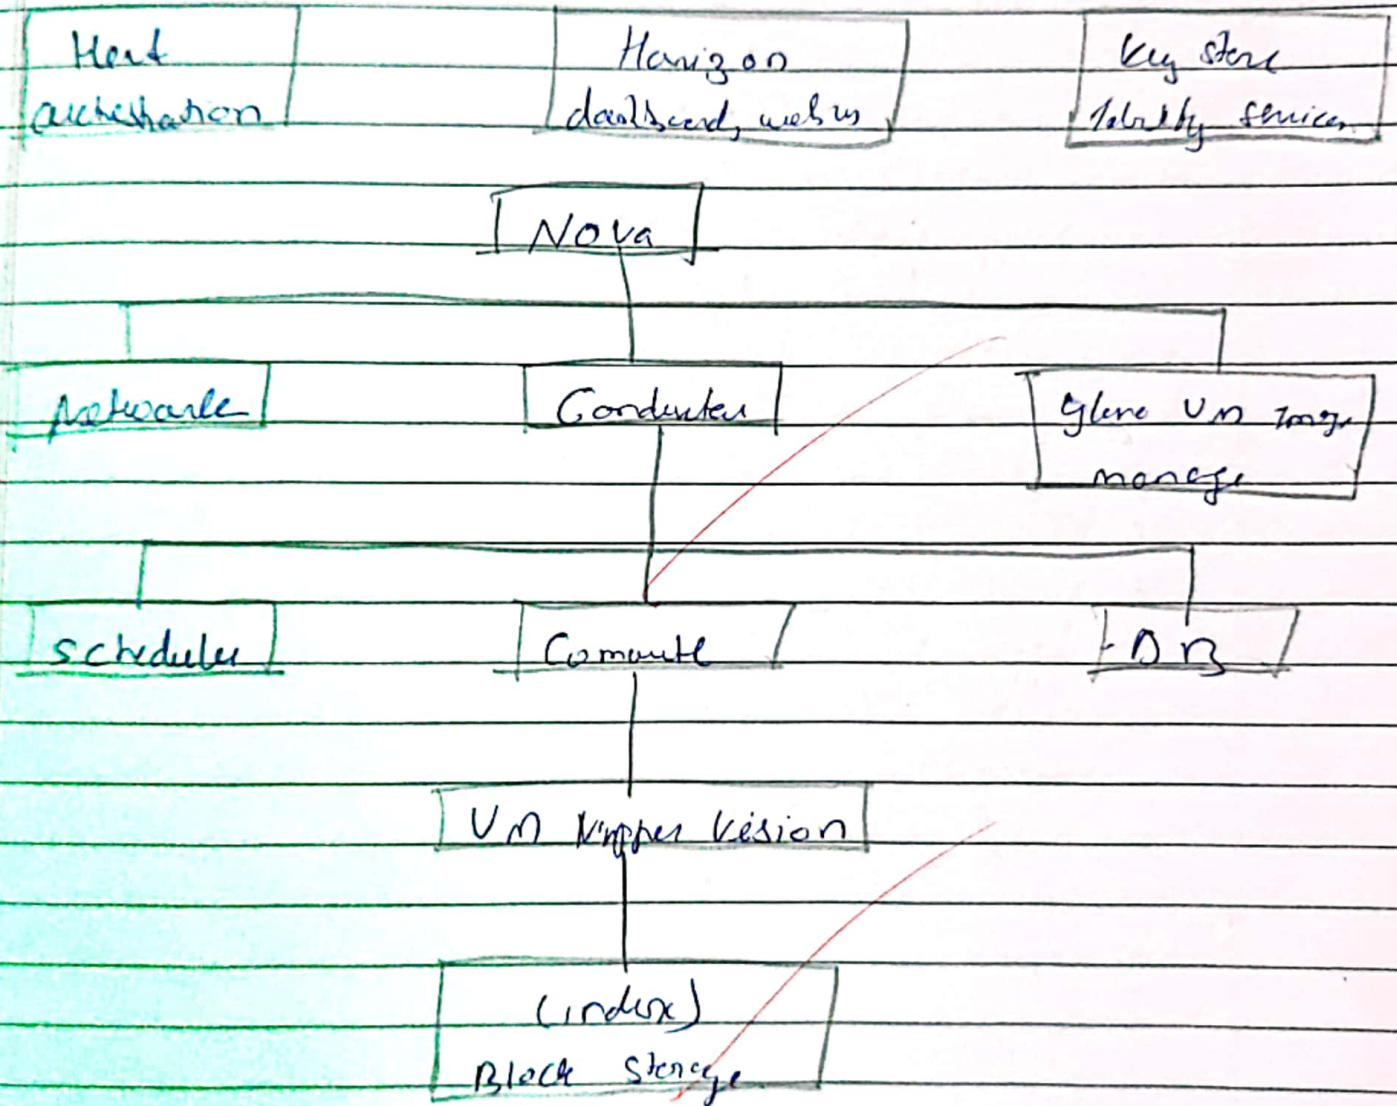 Heat
orchestration
Horizon
dashboard, web us
Key store
Identity Services
Nova
Network
Conductor
Glene VM Image
manage
Scheduler
Comoute
DB
VM Vision
(index)
Block Storage